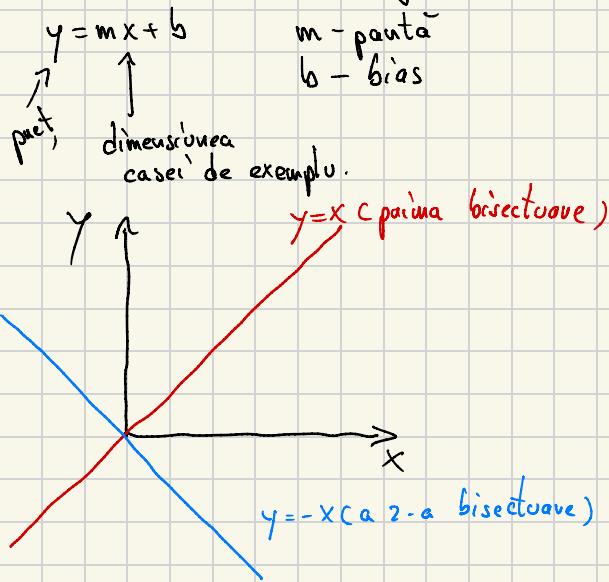 y = mx + b
m - pantă
b - bias
preț,
dimensiunea
casei de exemplu.
Y
y=x (prima bisectoare)
X
y=-x (a 2-a bisectoare)